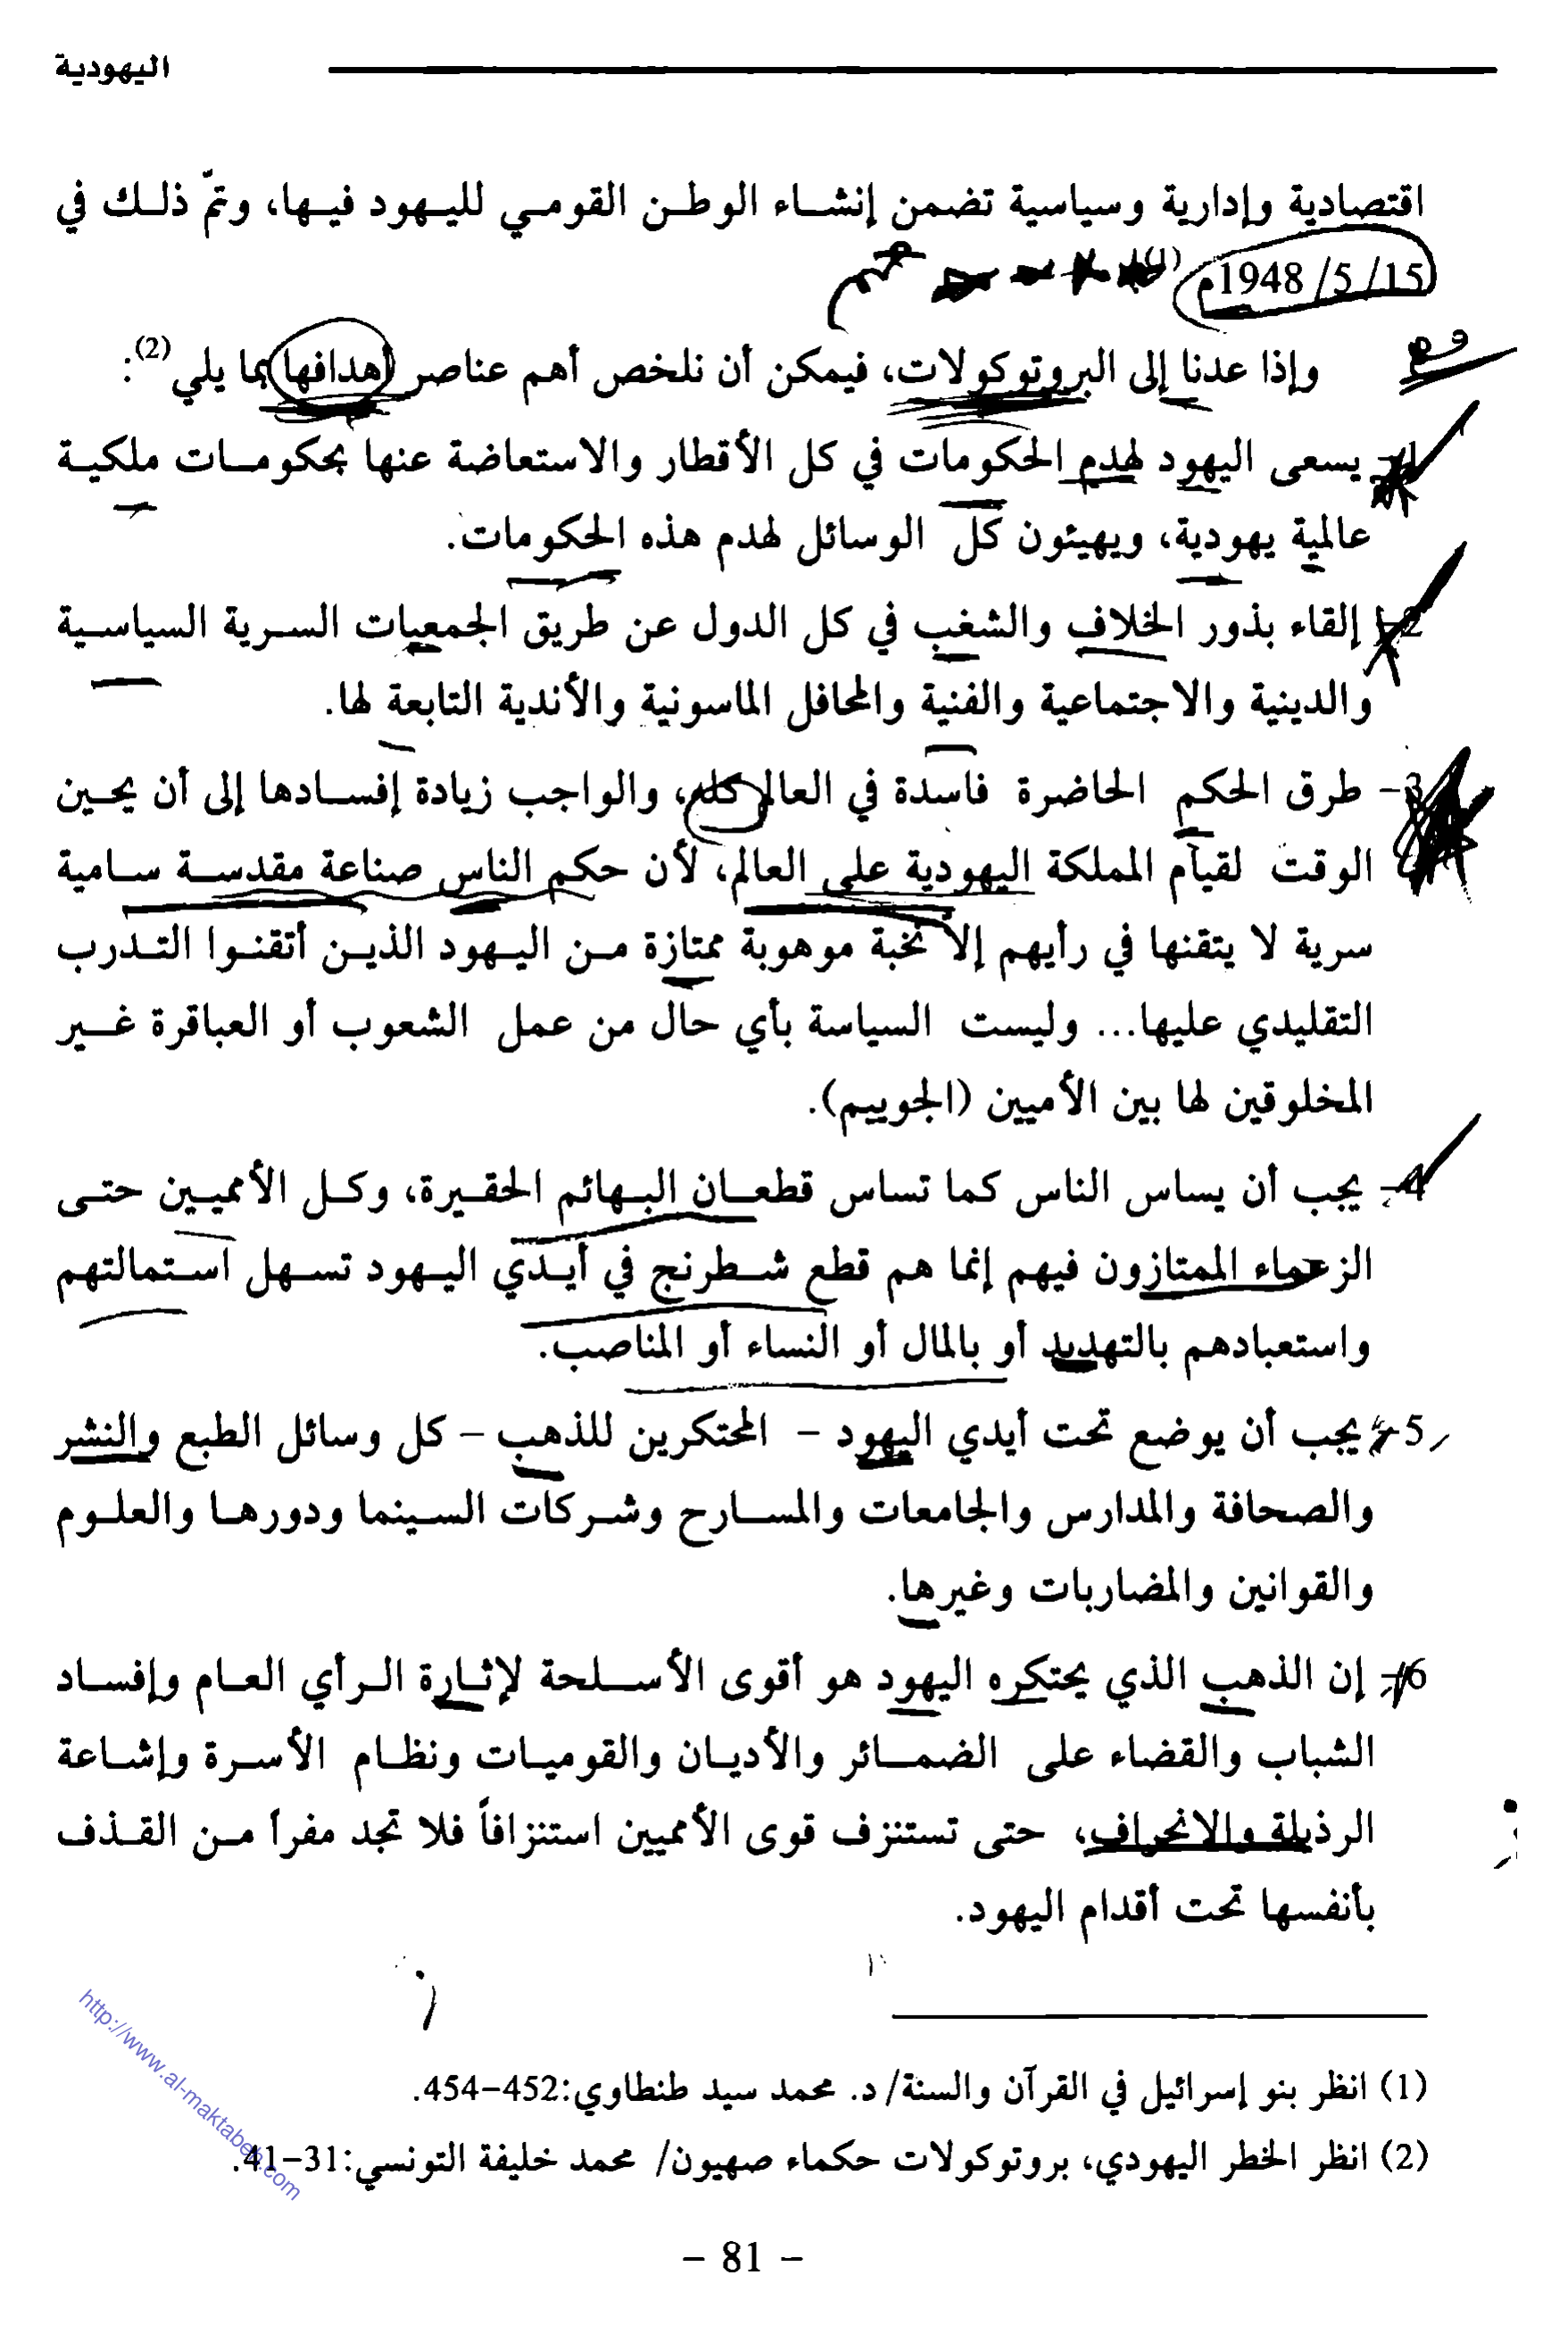 اليهودية
اقتصادية وإدارية وسياسية تضمن إنشاء الوطن القومي لليهود فيها، وتمّ ذلك في
15/ 5/ 1948م(1)
وإذا عدنا إلى البروتوكولات، فيمكن أن نلخص أهم عناصر أهدافها بما يلي(2):
1- يسعى اليهود لهدم الحكومات في كل الأقطار والاستعاضة عنها بحكومات ملكية
عالمية يهودية، ويهيئون كل الوسائل لهدم هذه الحكومات.
2- إلقاء بذور الخلاف والشغب في كل الدول عن طريق الجمعيات السرية السياسية
والدينية والاجتماعية والفنية والمحافل الماسونية والأندية التابعة لها.
3- طرق الحكم الحاضرة فاسدة في العالم كله، والواجب زيادة إفسادها إلى أن يحين
الوقت لقيام المملكة اليهودية على العالم، لأن حكم الناس صناعة مقدسة سامية
سرية لا يتقنها في رأيهم إلا نخبة موهوبة ممتازة من اليهود الذين أتقنوا التدرب
التقليدي عليها... وليست السياسة بأي حال من عمل الشعوب أو العباقرة غير
المخلوقين لها بين الأميين (الجوييم).
4- يجب أن يساس الناس كما تساس قطعان البهائم الحقيرة، وكل الأمميين حتى
الزعماء الممتازون فيهم إنما هم قطع شطرنج في أيدي اليهود تسهل استمالتهم
واستعبادهم بالتهديد أو بالمال أو النساء أو المناصب.
5- يجب أن يوضع تحت أيدي اليهود – المحتكرين للذهب – كل وسائل الطبع والنشر
والصحافة والمدارس والجامعات والمسارح وشركات السينما ودورها والعلوم
والقوانين والمضاربات وغيرها.
6- إن الذهب الذي يحتكره اليهود هو أقوى الأسلحة لإثارة الرأي العام وإفساد
الشباب والقضاء على الضمائر والأديان والقوميات ونظام الأسرة وإشاعة
الرذيلة والانحراف، حتى تستنزف قوى الأمميين استنزافاً فلا تجد مفراً من القذف
بأنفسها تحت أقدام اليهود.
(1) انظر بنو إسرائيل في القرآن والسنة/ د. محمد سيد طنطاوي:452-454.
(2) انظر الخطر اليهودي، بروتوكولات حكماء صهيون/ محمد خليفة التونسي:31-41.
http://www.al-maktabeh.com
– 81 –